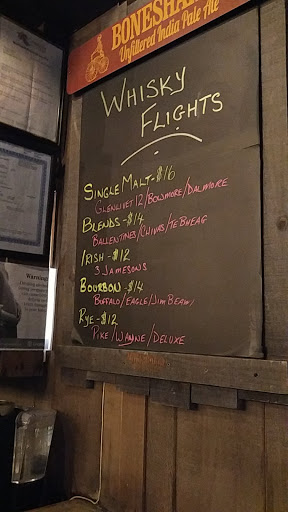 BONESHA
Unfiltered India Pale Ale
WHISKY
FLIGHTS
SINGLE MALT-$16
GLENLIVET 12/BOWMORE/DALMORE
BLENDS-$14
BALLENTINES/CHIVAS/TE BHEAG
IRISH-$12
3 JAMESONS
BOURBON-$14
BUFFALO/EAGLE/JIM BEAM/
RYE-$12
PIKE/WAYNE/DELUXE
Warning